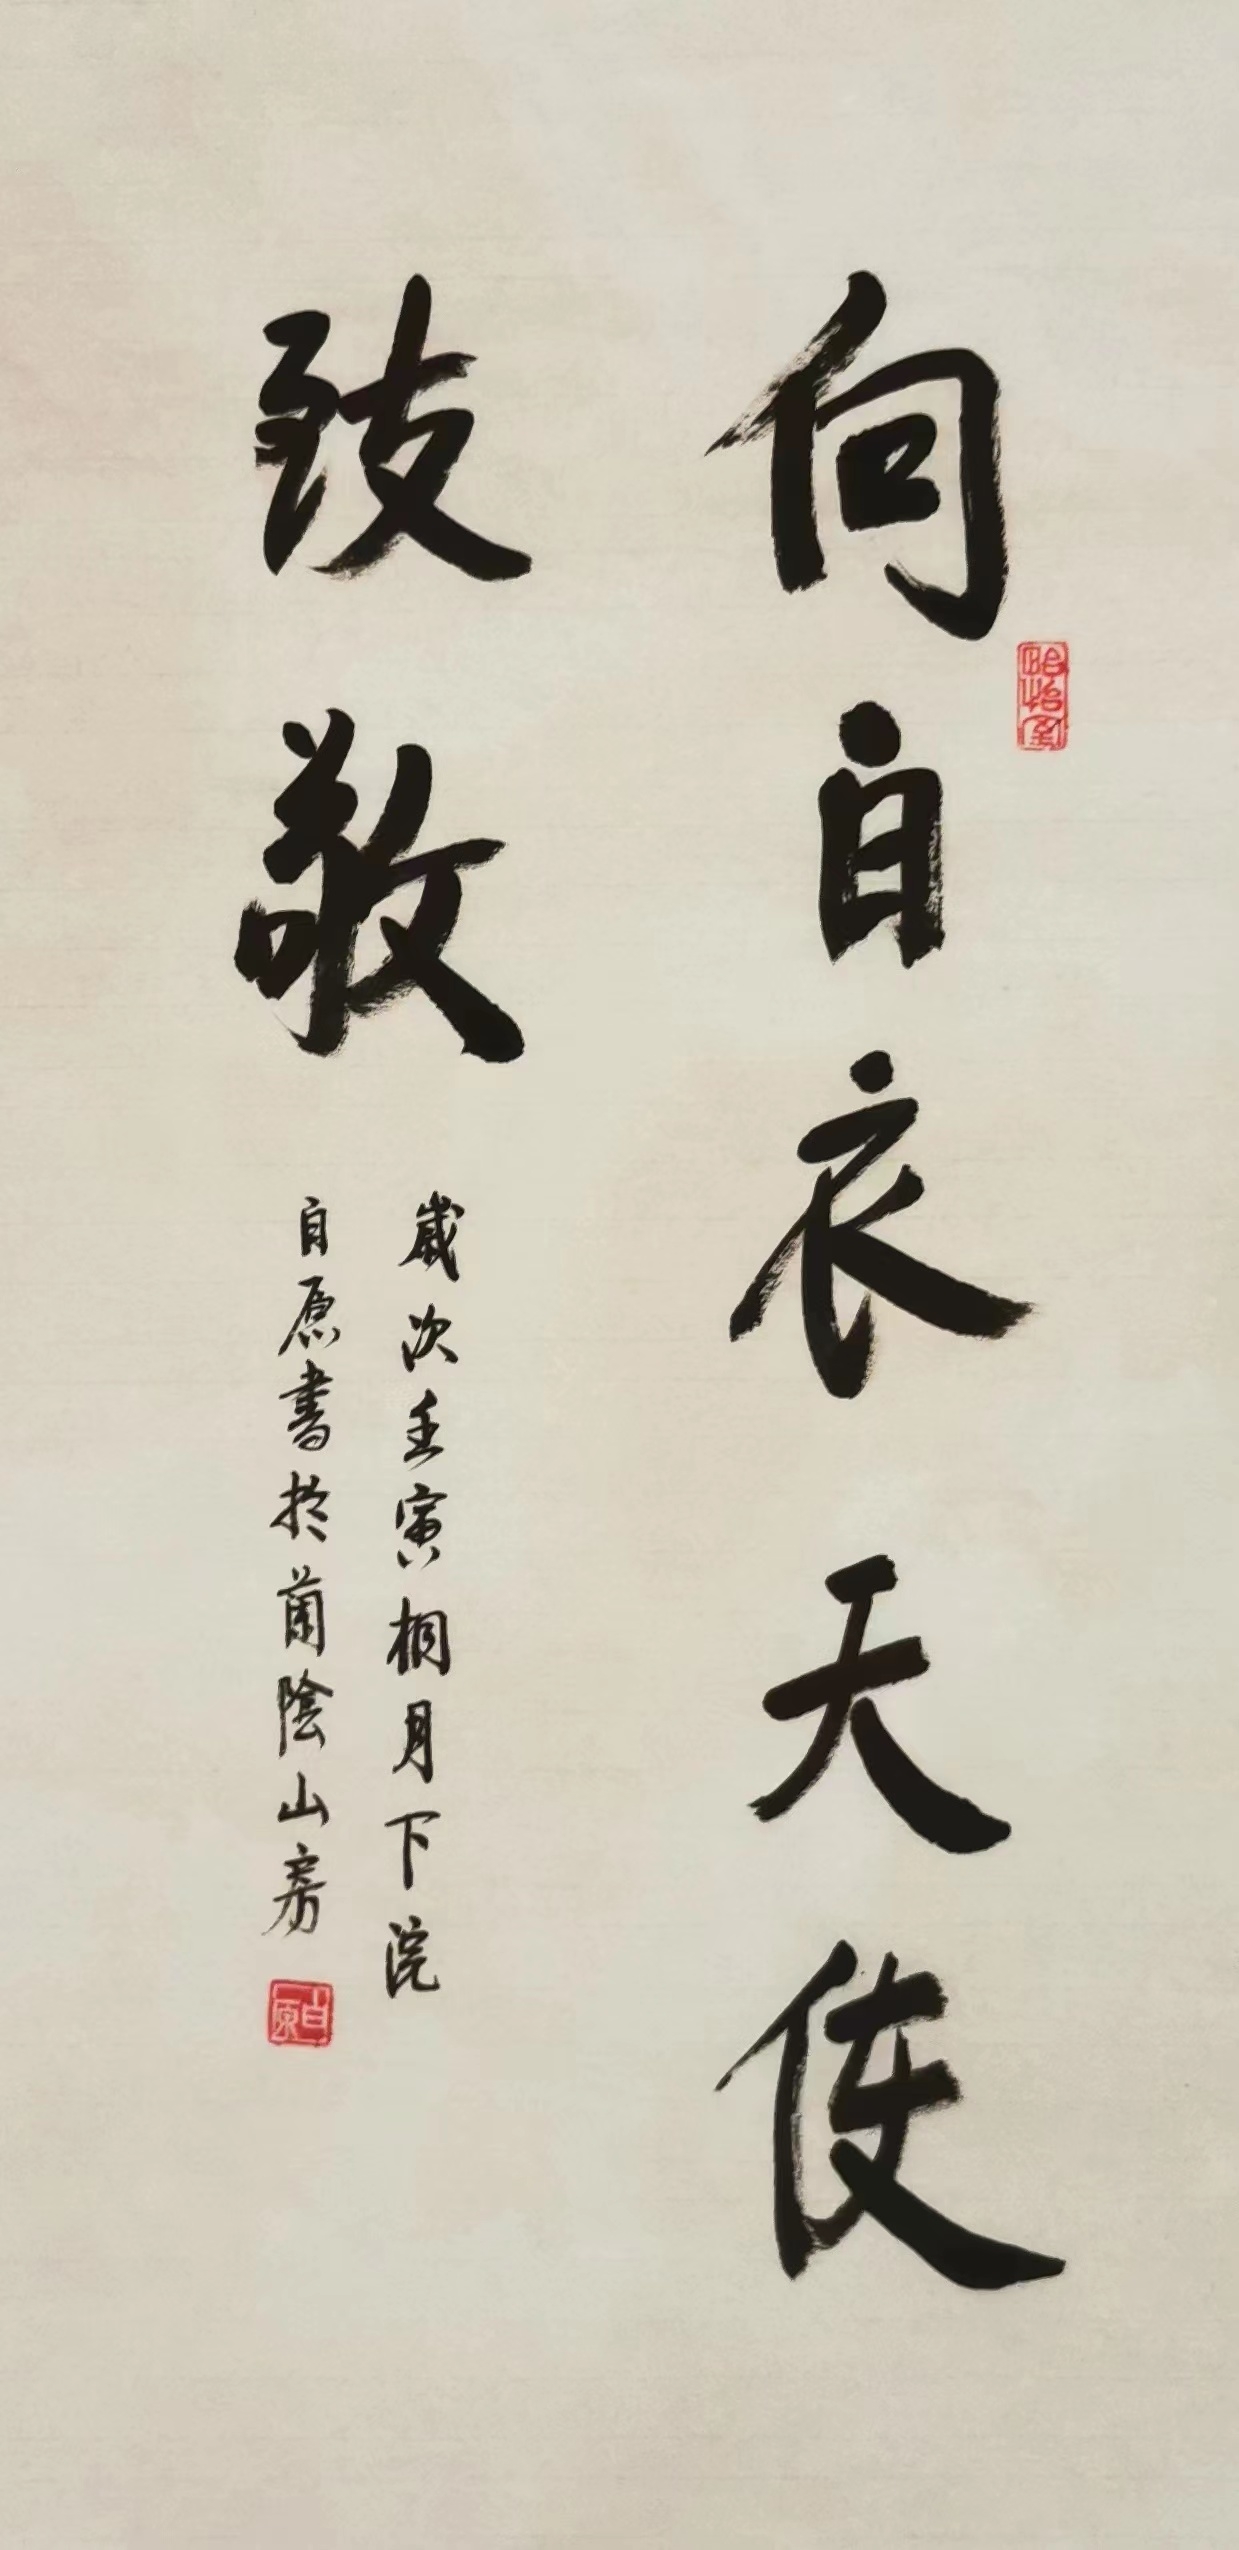 向白衣天使
致敬
歲次壬寅桐月下浣
自原書於蘭陰山房
自原